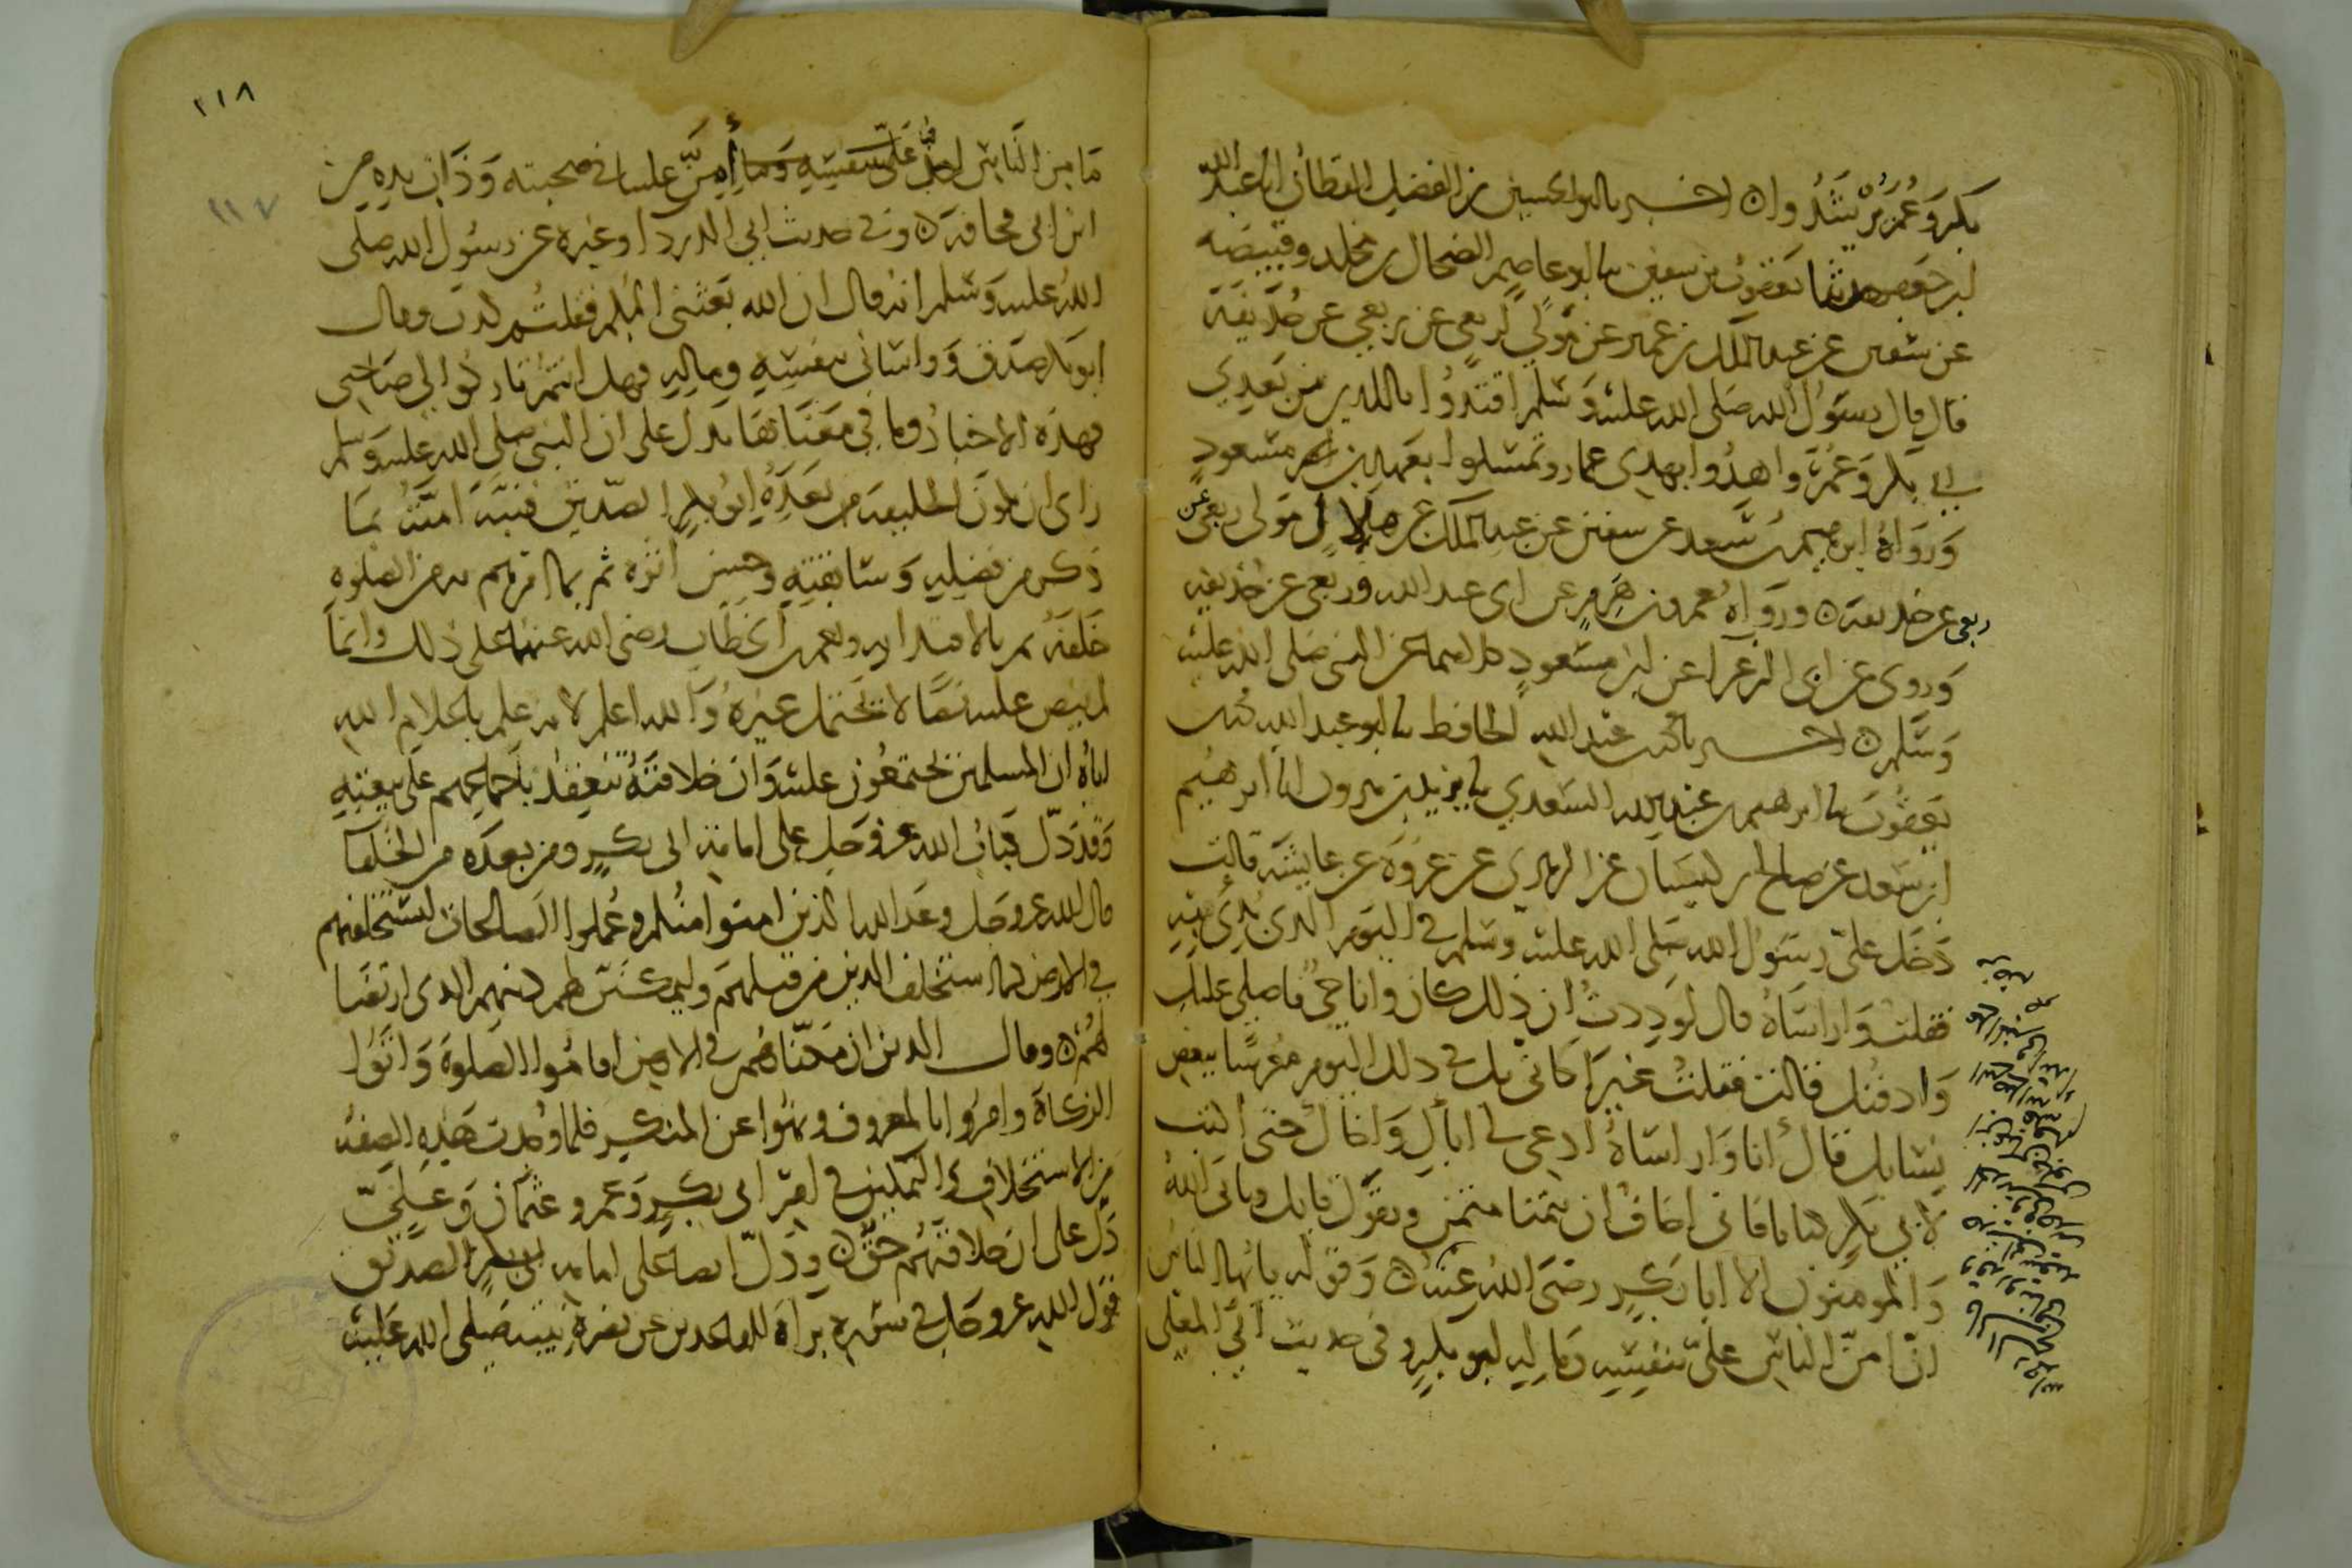 بكر وعمر يرشدوا ن اخبرنا ابو الحسين بن الفضل القطان انا عبد الله
ابن جعفر حدثنا يعقوب بن سفين نا ابو عاصم الضحاك بن مخلد وقبيصه
عن سفين عن عبد الملك بن عمير عن مولى لربعي عن ربعي عن حذيفة
قال قال رسول الله صلى الله عليه وسلم اقتدوا باللذين من بعدي
ابي بكر وعمر واهدوا بهدي عمار وتمسكوا بعهد ابن ام مسعود
ورواه ابرهيم بن سعد عن سفين عن عبد الملك عن هلال مولى ربعي عن
ربعي عن حذيفة ن ورواه عمرو بن هرم عن ابي عبد الله وربعي عن حذيفه
وروي عن ابي الزعراء عن ابن مسعود كلاهما عن النبي صلى الله عليه
وسلم ن اخبرنا محمد بن عبد الله الحافظ نا ابو عبد الله محمد بن
يعقوب نا ابرهيم بن عبد الله السعدي نا يزيد بن هرون انا ابرهيم
ابن سعد عن صالح بن كيسان عن الزهري عن عروة عن عايشة قالت
دخل علي رسول الله صلى الله عليه وسلم في اليوم الذي بدي فيه
فقلت واراساه قال لوددت ان ذلك كان وانا حي فاصلي عليك
وادفنك قالت فقلت غيرا كاني بك في ذلك اليوم معرسا ببعض
نسايك قال انا واراساه ادعي لي اباك واخاك حتى اكتب
لابي بكر كتابا فاني اخاف ان يتمنا متمن ويقول قايل ويابى الله
والمومنون الا ابا بكر رضي الله عنه ن وقوله يا ايها الناس
ان امن الناس علي بنفسه وماله ابو بكر وفي حديث ابي المعلى
١١٨
١١٧
ما من الناس احد امن علينا في صحبته وذات يده من
ابن ابي قحافة ن وفي حديث ابي الدرداء وغيره عن رسول الله صلى
الله عليه وسلم انه قال ان الله بعثني اليكم فقلتم كذبت وقال
ابو بكر صدق وواساني بنفسه وماله فهل انتم تاركوا لي صاحبي
فهذه الاخبار وما في معناها تدل على ان النبي صلى الله عليه وسلم
راى ان يكون الخليفة من بعده ابو بكر الصديق فنبه امته بما
ذكر من فضله وسابقته وحسن اثره ثم بما امرهم به من الصلوه
خلفه ثم بالاقتدا به وبعمر بن الخطاب رضي الله عنهما على ذلك وانما
لم ينص عليه نصا لا يحتمل غيره والله اعلم لانه علم باعلام الله
اياه ان المسلمين يجتمعون عليه وان خلافته تنعقد باجماعهم على بيعته
وقد دل كتاب الله عز وجل على امامة ابي بكر ومن بعده من الخلفآ
قال الله عز وجل وعد الله الذين امنوا منكم وعملوا الصالحات ليستخلفنهم
في الارض كما استخلف الذين من قبلهم وليمكنن لهم دينهم الذي ارتضا
لهم ن وقال الذين ان مكناهم في الارض اقاموا الصلوة واتوا
الزكاة وامروا بالمعروف ونهوا عن المنكر فلما وجدت هذه الصفه
من الاستخلاف والتمكين في امر ابي بكر وعمر وعثمان وعلي
دل على ان خلافتهم حق ن ودل ايضا على امامة ابي بكر الصديق
قول الله عز وجل في سورة براة للقاعدين عن نصرة نبيه صلى الله عليه